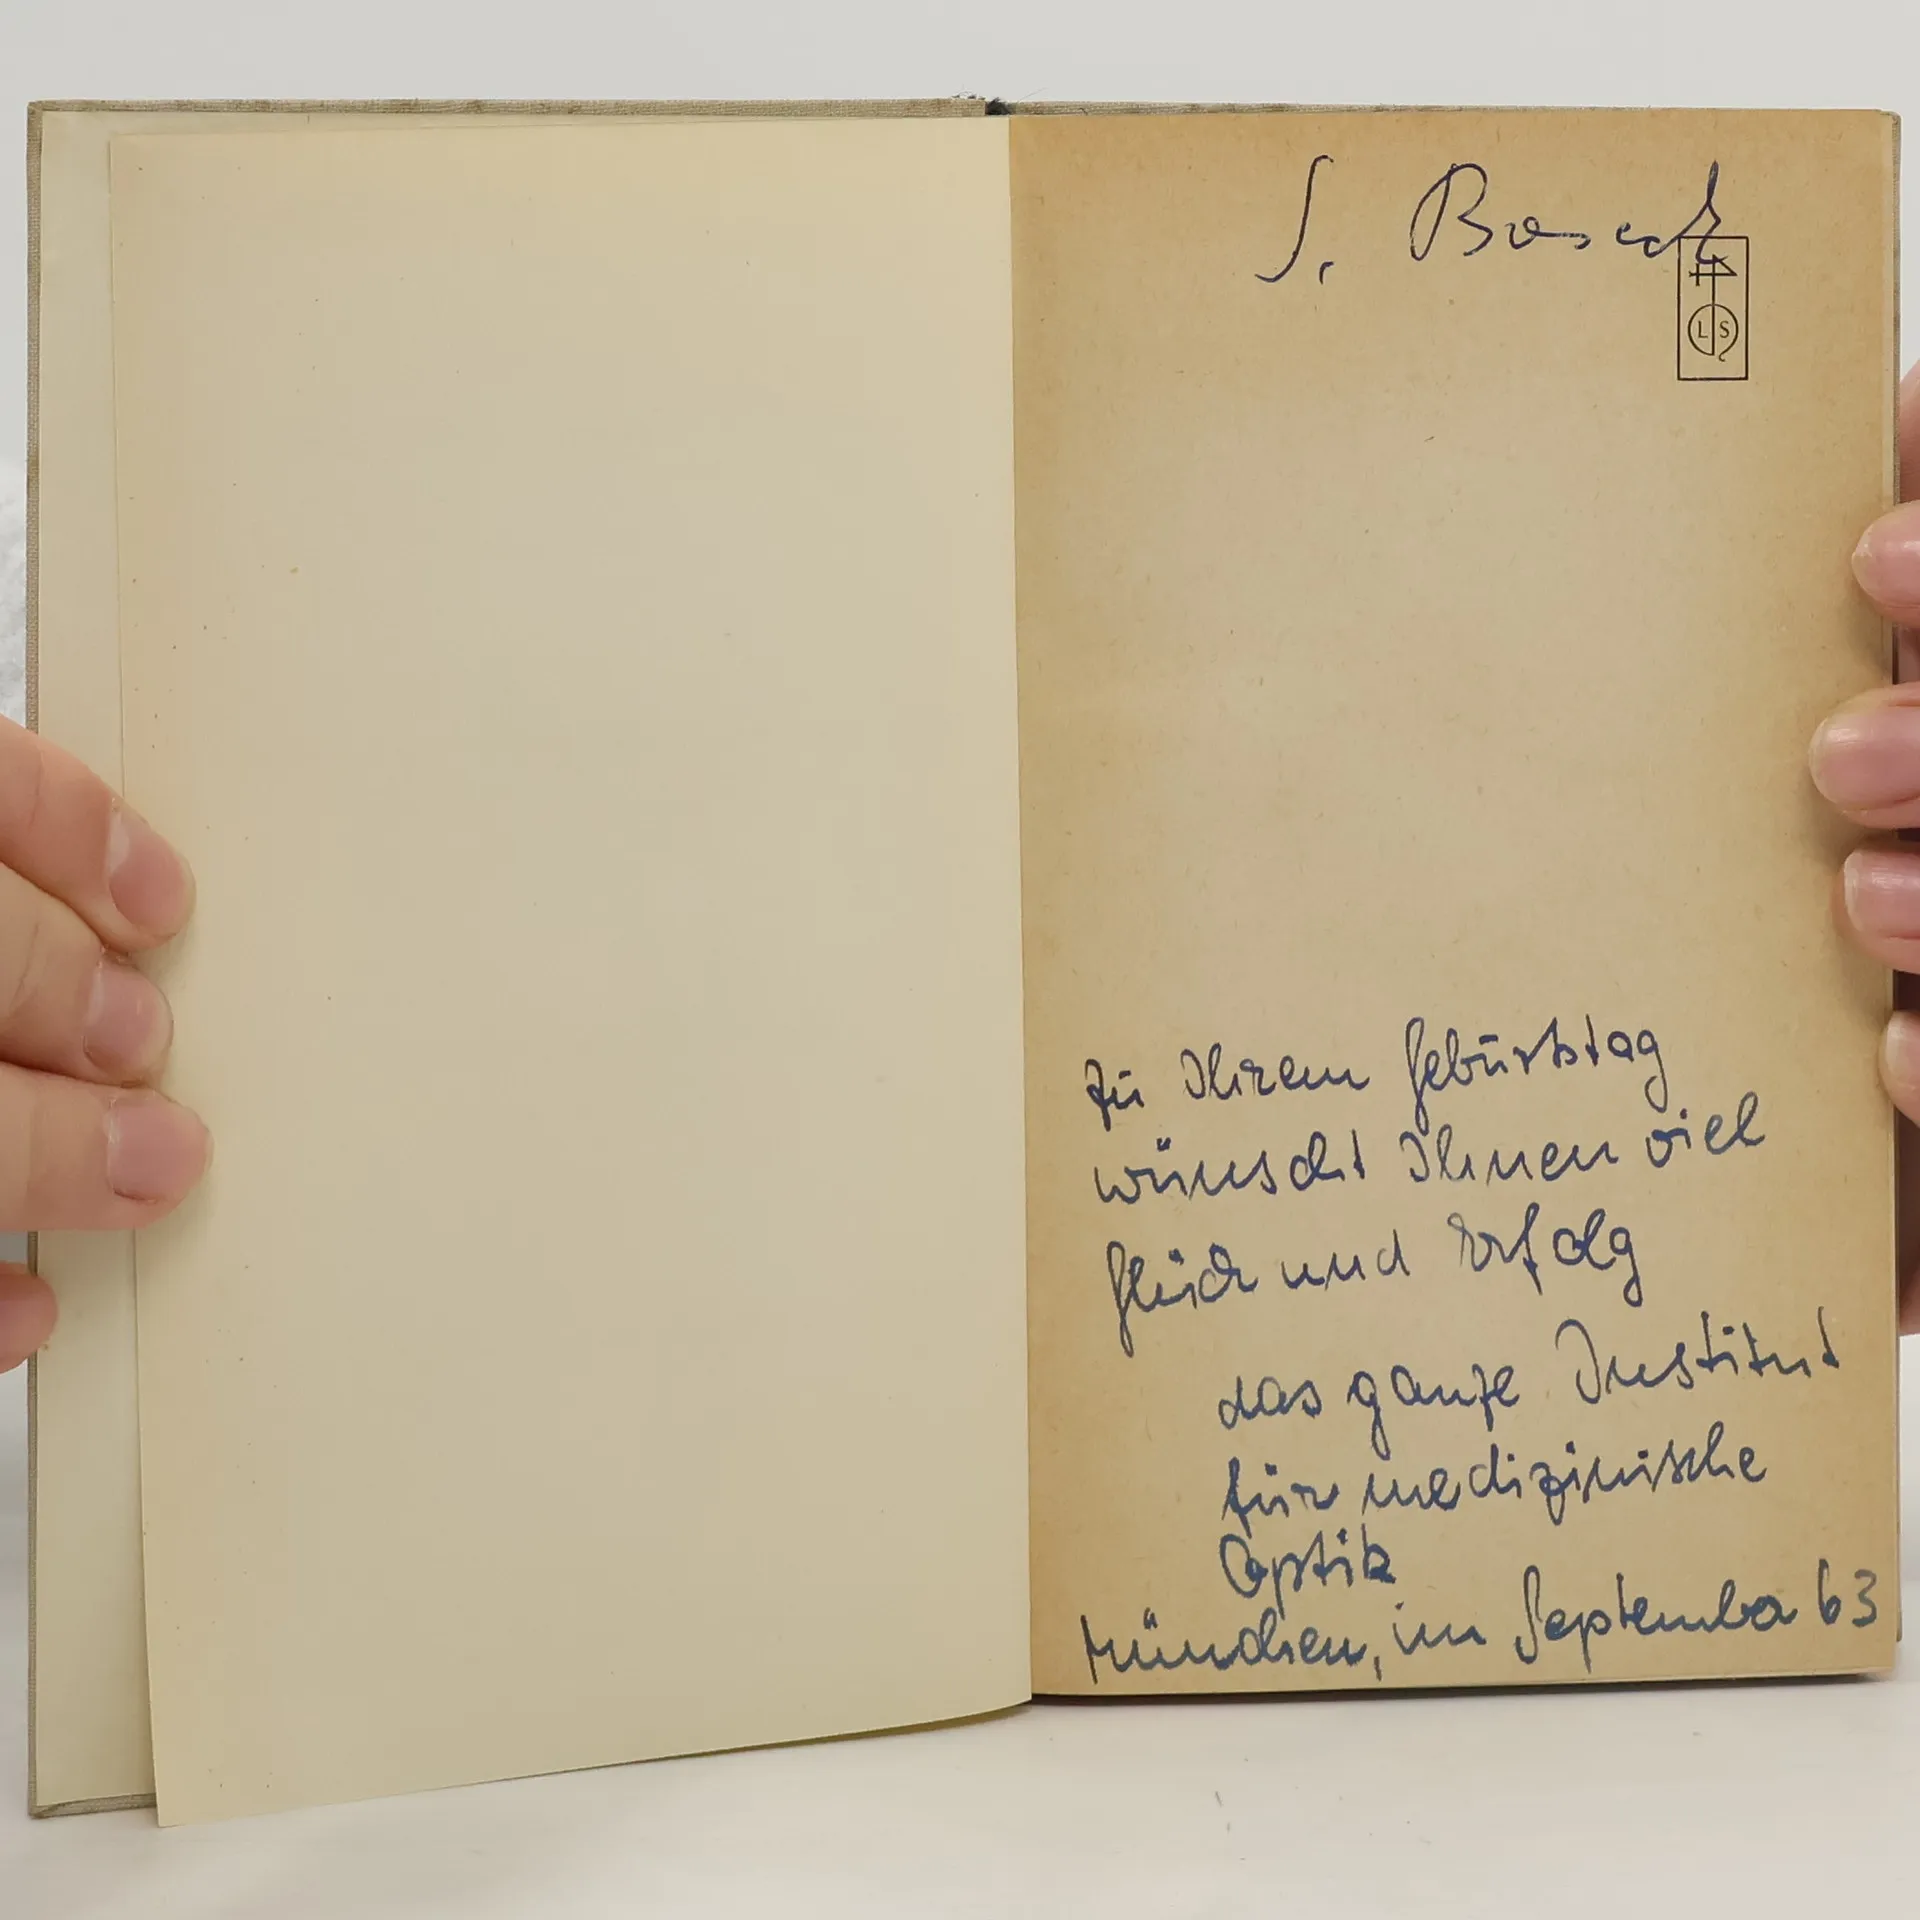 S. Bosch
L S
Zu Ihrem Geburtstag
wünscht Ihnen viel
Glück und Erfolg
das ganze Institut
für medizinische
Optik
München, im September 63